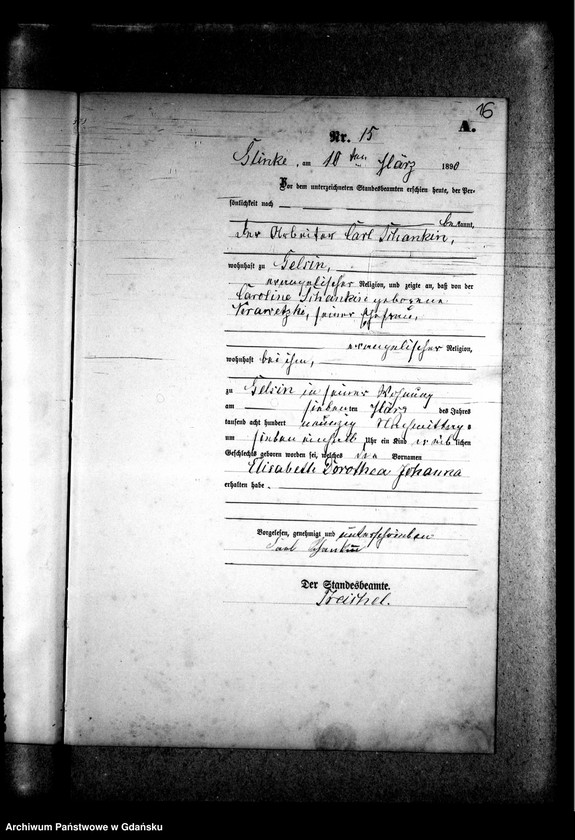 16
A.
Nr. 15
Glinke, am 10 ten März 1890
Vor dem unterzeichneten Standesbeamten erschien heute, der Per-
sönlichkeit nach
bekannt,
der Arbeiter Carl
wohnhaft zu Gelsin,
evangelischer Religion, und zeigte an, daß von der
Caroline geborene
seiner Ehefrau,
evangelischer Religion,
wohnhaft bei ihm,
zu Gelsin in seiner Wohnung
am siebenten März des Jahres
tausend acht hundert neunzig Nachmittags
um sieben einhalb Uhr ein Kind weiblichen
Geschlechts geboren worden sei, welches die Vornamen
Elisabeth Dorothea Johanna
erhalten habe.
Vorgelesen, genehmigt und unterschrieben
Carl
Der Standesbeamte.
Treichel.
Archiwum Państwowe w Gdańsku